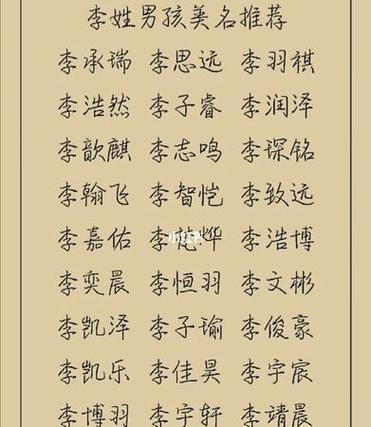 李姓男孩美名推荐
李承瑞 李思远 李羽祺
李浩然 李子睿 李润泽
李歆麒 李志鸣 李琛铭
李翰飞 李智恺 李致远
李嘉佑 李 烨 李浩博
李奕晨 李恒羽 李文彬
李凯泽 李子瑜 李俊豪
李凯乐 李佳昊 李宇宸
李博羽 李宇轩 李靖晨